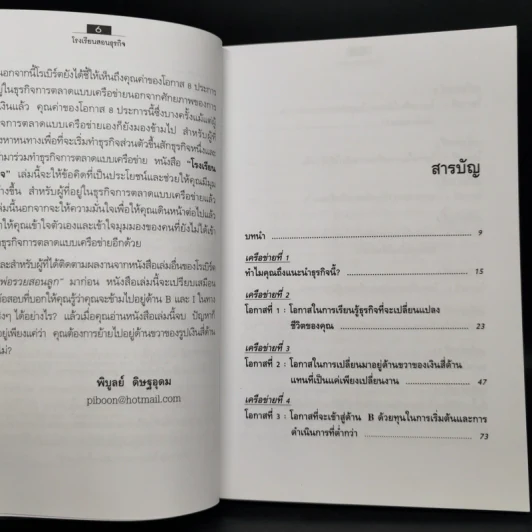 6
โรงเรียนสอนธุรกิจ
นอกจากนี้โรเบิร์ตยังได้ชี้ให้เห็นถึงคุณค่าของโอกาส 8 ประการ
ในธุรกิจการตลาดแบบเครือข่ายนอกจากศักยภาพของการ
เงินแล้ว คุณค่าของโอกาส 8 ประการนี้ซึ่งบางครั้งแม้แต่ผู้
การตลาดแบบเครือข่ายเองก็ยังมองข้ามไป สำหรับผู้ที่
งหาหนทางเพื่อที่จะเริ่มทำธุรกิจส่วนตัวขึ้นสักธุรกิจหนึ่งและ
ามาร่วมทำธุรกิจการตลาดแบบเครือข่าย หนังสือ "โรงเรียน
จ" เล่มนี้จะให้ข้อคิดที่เป็นประโยชน์และช่วยให้คุณมีมุม
างขึ้น สำหรับผู้ที่อยู่ในธุรกิจการตลาดแบบเครือข่ายแล้ว
ล่มนี้นอกจากจะให้ความมั่นใจเพื่อให้คุณเดินหน้าต่อไปแล้ว
ให้คุณเข้าใจตัวเองและเข้าใจมุมมองของคนที่ยังไม่ได้เข้า
ธุรกิจการตลาดแบบเครือข่ายอีกด้วย
และสำหรับผู้ที่ได้ติดตามผลงานจากหนังสือเล่มอื่นของโรเบิร์ต
พ่อรวยสอนลูก" มาก่อน หนังสือเล่มนี้จะเปรียบเสมือน
ข้อสอบที่บอกให้คุณรู้ว่าคุณจะข้ามไปอยู่ด้าน B และ I ในทาง
งๆ ได้อย่างไร? แล้วเมื่อคุณอ่านหนังสือเล่มนี้จบ ปัญหาก็
อยู่เพียงแค่ว่า คุณต้องการย้ายไปอยู่ด้านขวาของรูปเงินสี่ด้าน
ไม่?
พิบูลย์ ดิษฐอุดม
piboon@hotmail.com
สารบัญ
บทนำ 9
เครือข่ายที่ 1
ทำไมคุณถึงแนะนำธุรกิจนี้? 15
เครือข่ายที่ 2
โอกาสที่ 1 : โอกาสในการเรียนรู้ธุรกิจที่จะเปลี่ยนแปลง
ชีวิตของคุณ 23
เครือข่ายที่ 3
โอกาสที่ 2 : โอกาสในการเปลี่ยนมาอยู่ด้านขวาของเงินสี่ด้าน
แทนที่เป็นแค่เพียงเปลี่ยนงาน 47
เครือข่ายที่ 4
โอกาสที่ 3 : โอกาสที่จะเข้าสู่ด้าน B ด้วยทุนในการเริ่มต้นและการ
ดำเนินการที่ต่ำกว่า 73